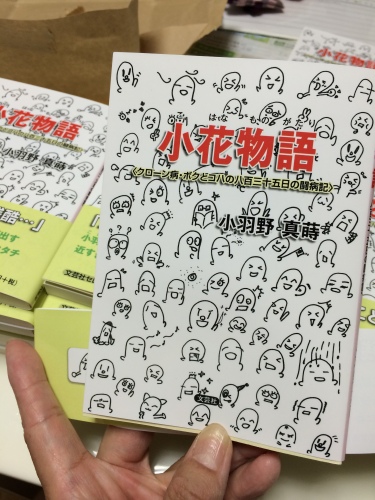 はなものがたり
小花物語
〈クローン病・ボクとゴハの八百三十五日の闘病記〉
小羽野 真蒔
文芸社
小花物語
小羽野 真蒔
語…」
出す
タチ
文芸社セ
近す